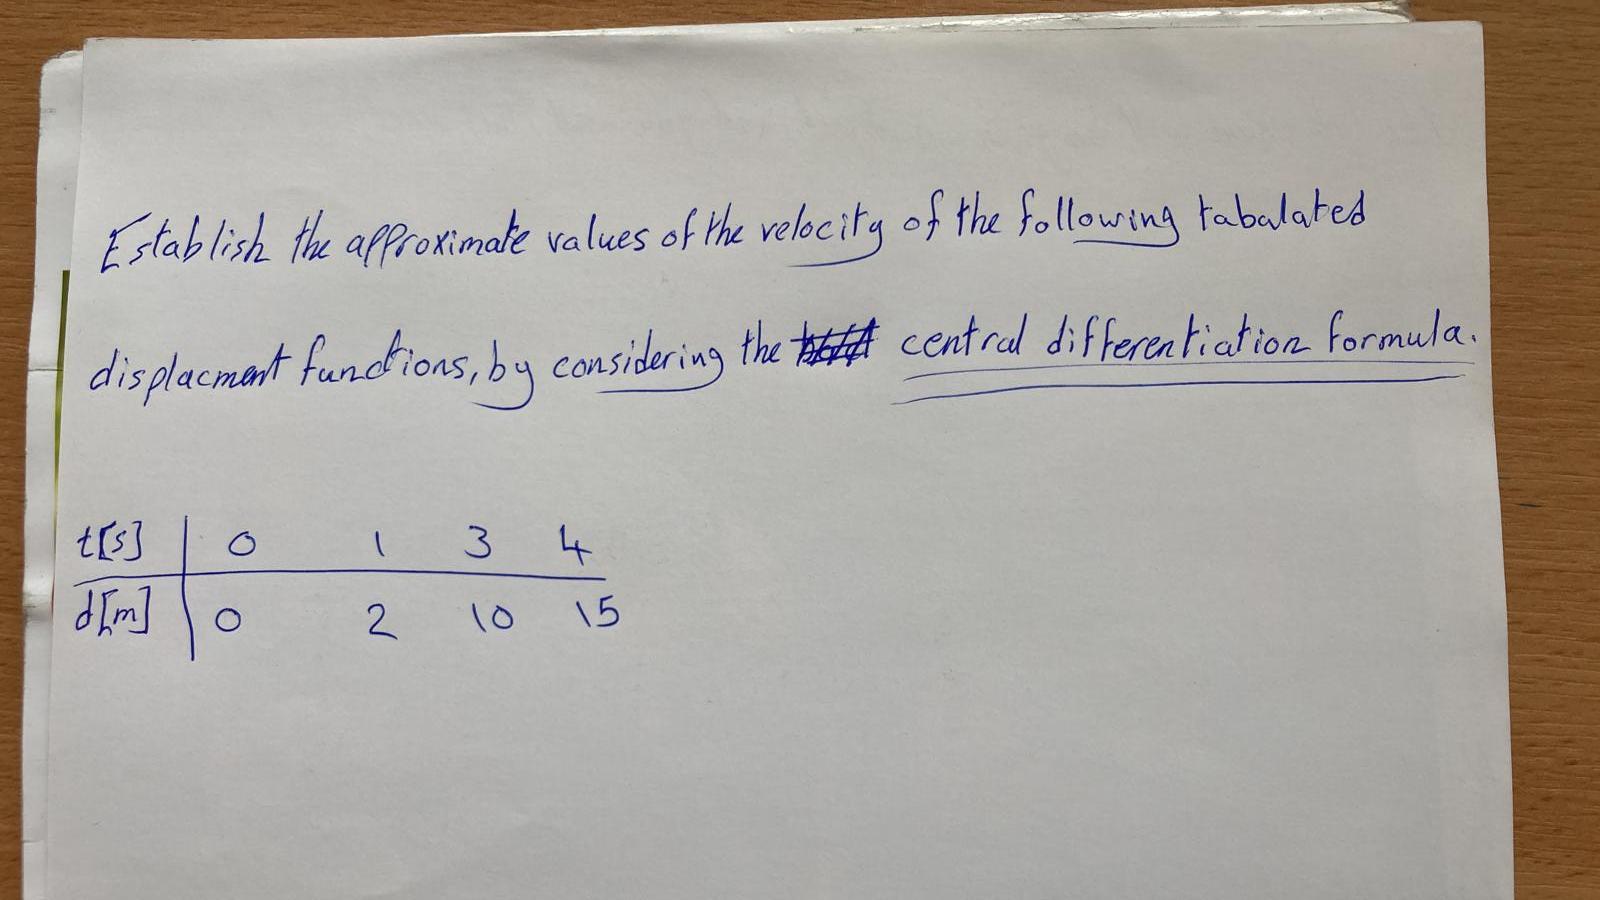 Establish the approximate values of the velocity of the following tabalated
displacment functions, by considering the central differentiation formula.
t[s] 0 1 3 4
d[m] 0 2 10 15